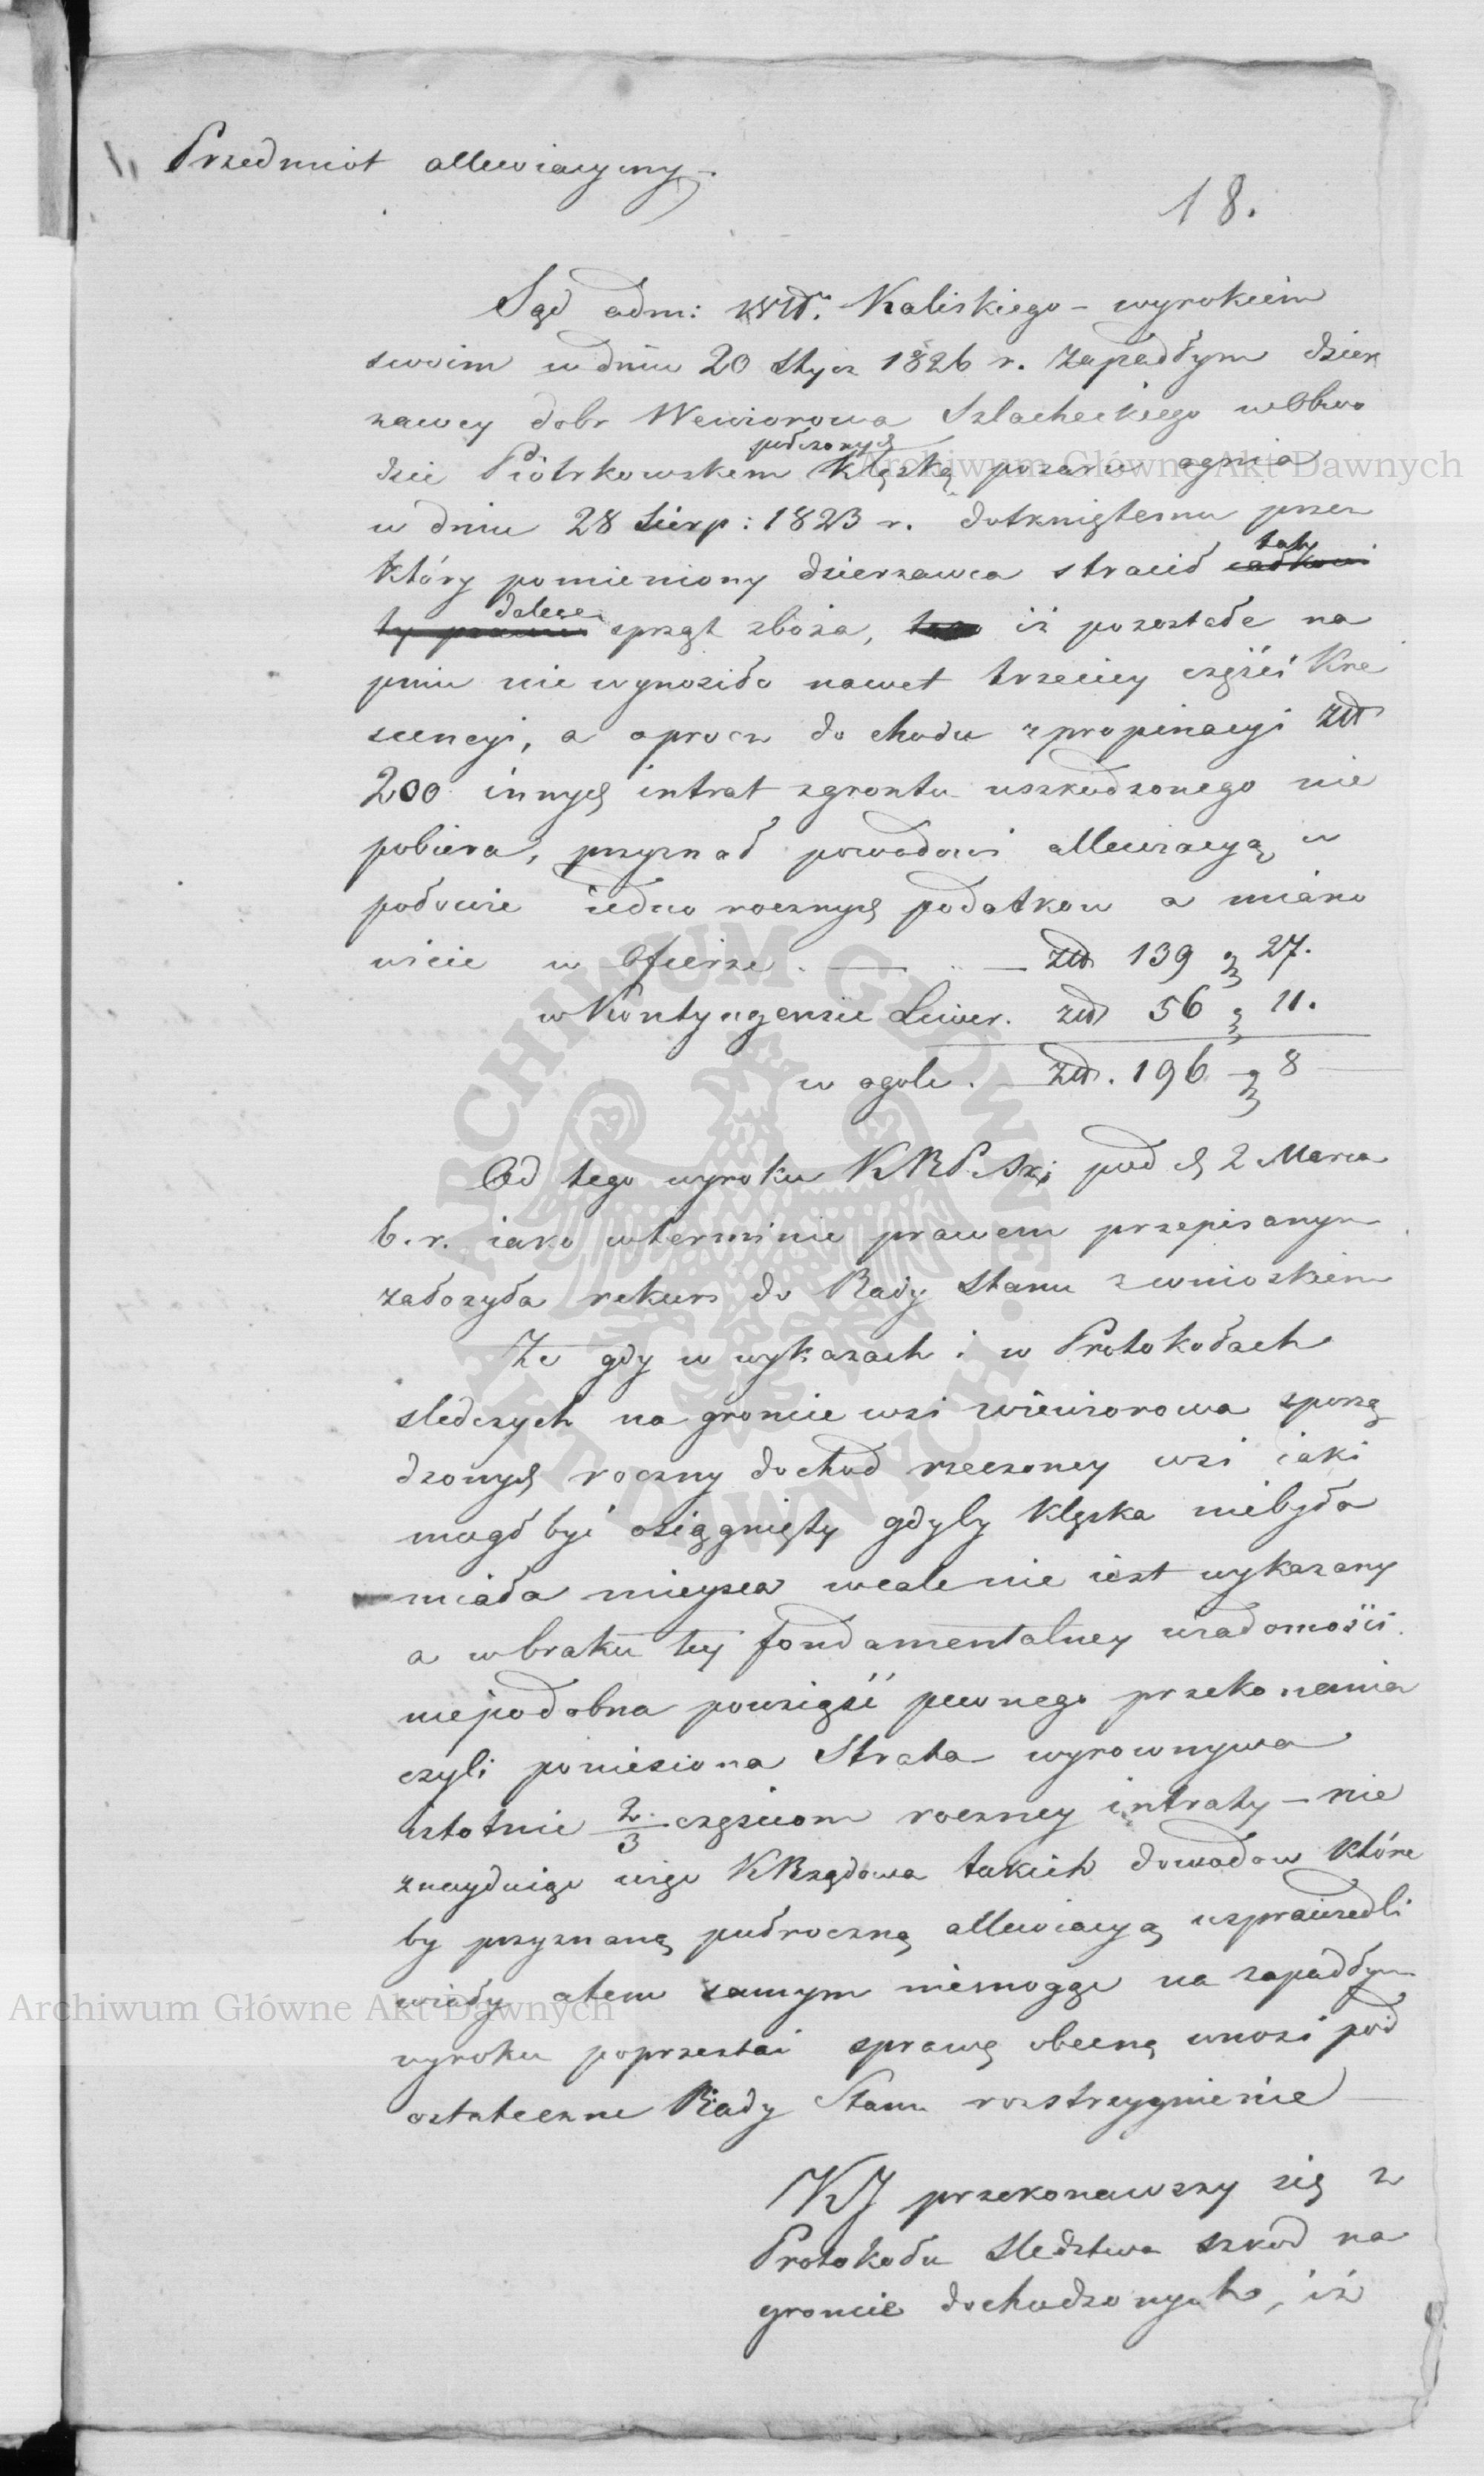 Przedmiot allewiacyiny.
18.
Sąd adm: Wdt. Kaliskiego – wyrokiem
swoim w dniu 20 Stycz 1826 r. zapadłym dzier
zawcy dobr Wewiorowa Szlacheckiego w Obwo
podrzonych
dzie Piotrkowskem klęską pozaru ognia
w dniu 28 Sierp: 1823 r. dotkniętemu przez
który pomieniony dzierzawca stracił całkowi taki
ty dalece sprzęt zboża, iż pozostałe na
pniu nie wynosiło nawet trzeciey części Kre
scencyi, a oprocz dochodu z propinacyi złt
200 innych intrat z gruntu uszkodzonego nie
pobiera, przyznał powodowi allewiacyą w
połowie iedno rocznych podatkow a miano
wicie w Ofierze . — . . — złt 139 g 27.
w Kontyngensie Liwer. złt 56 g 11.
w ogole . — złt. 196 g 8
Od tego wyroku KRPiSki pod d 2 Marca
b. r. iako w terminie prawem przepisanym
założyła rekurs do Rady Stanu z wnioskiem
Ze gdy w wykazach i w Protokołach
sledczych na groncie wsi Wiewiorowa sporzą
dzonych roczny dochod rzeczoney wsi iaki
mogł być osiągnięty gdyby klęska niebyła
miała mieysca wcale nie iest wykazany
a w braku tey fondamentalney wiadomości
niepodobna powziąść pewnego przekonania
czyli poniesiona Strata wyrownywa
istotnie 2/3 częściom roczney intraty – nie
znayduiąc więc KRządowa takich dowodow które
by przyznaną pułroczną allewiacyą usprawiedli
wiały atem samym niemogąc na zapadłym
wyroku poprzestać sprawę obecną wnosi pod
ostateczne Rady Stanu rozstrzygnienie
KJ przekonawszy się z
Protokołu sledztwa szkod na
groncie dochodzonych, iż
Archiwum Główne Akt Dawnych
ARCHIWUM GŁÓWNE AKT DAWNYCH
Archiwum Główne Akt Dawnych